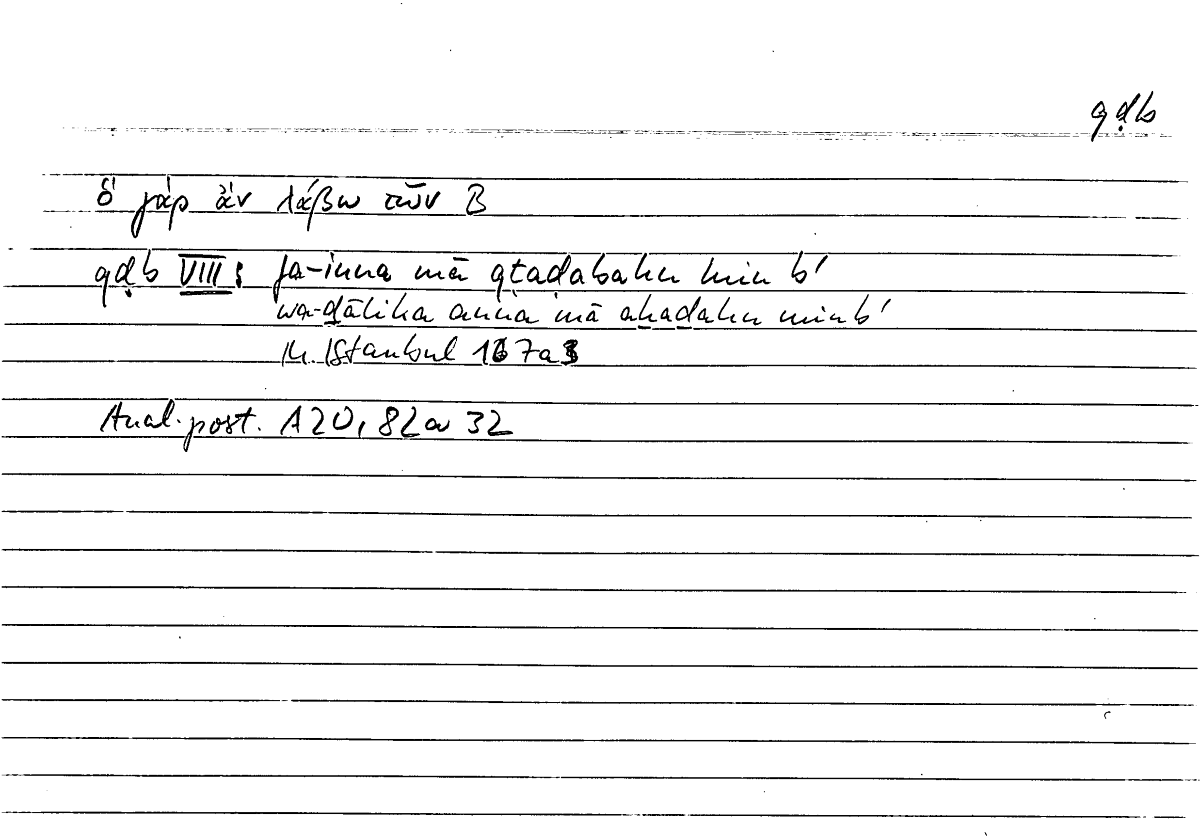 qḍb
ὃ γὰρ ἂν λάβω τῶν Β
qḍb VIII: fa-inna mā qtaḍabahu min b'
wa-ḏālika anna mā aḫaḏahu min b'
Istanbul 167a3
Anal. post. A20, 82a 32